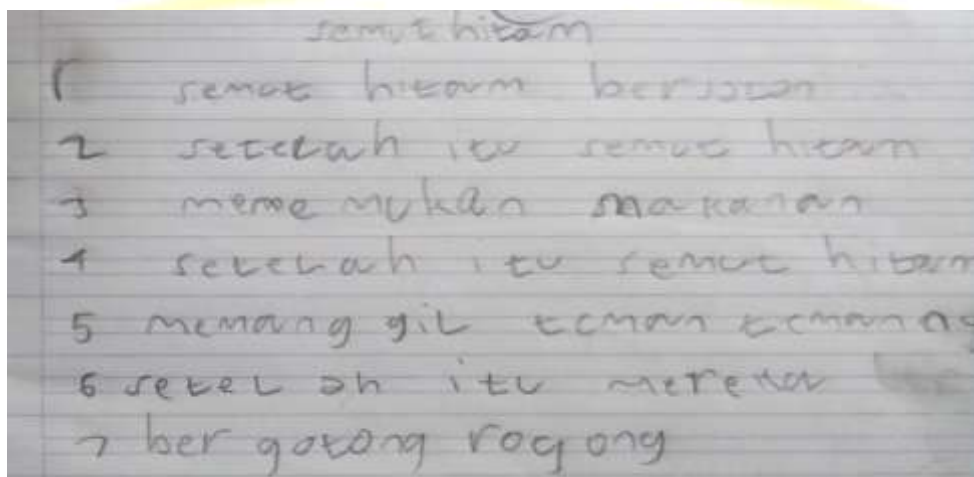 semut hitam
1 semut hitam berjalan
2 setelah itu semut hitam
3 meme mukan makanan
4 setelah itu semut hitam
5 memang gil teman teman
6 setel ah itu mereka
7 ber gotong rogong